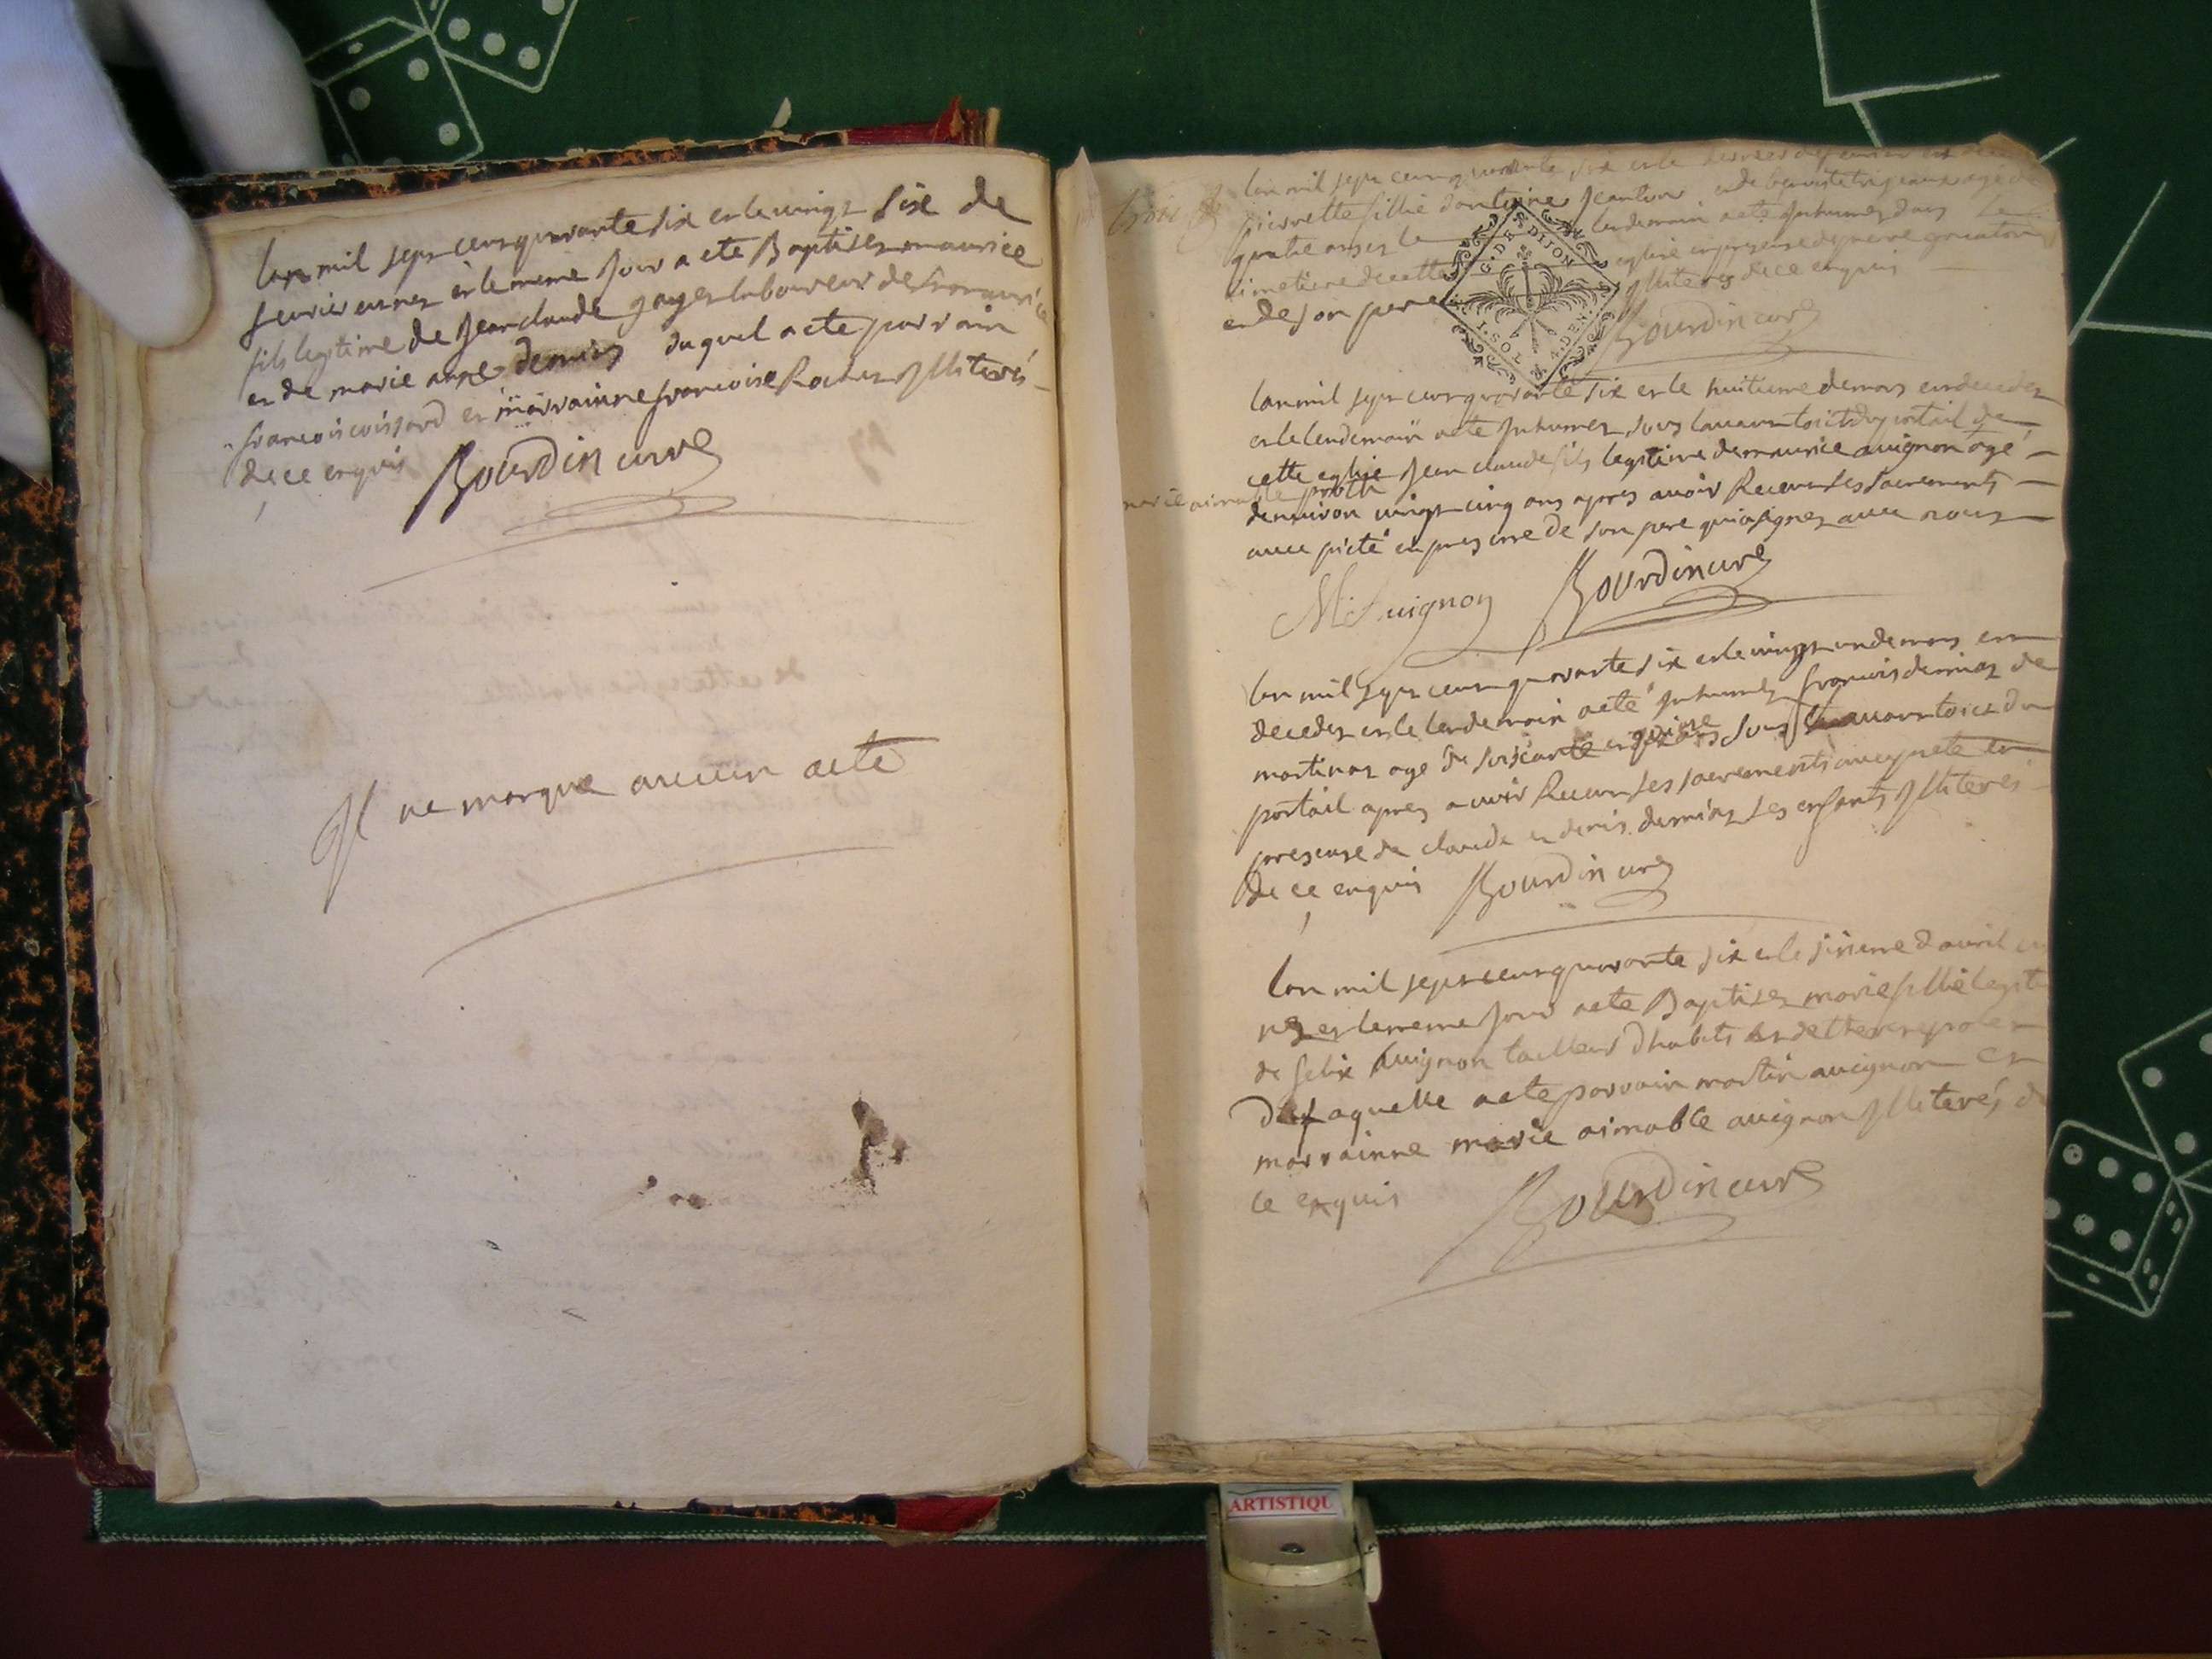 lan mil sept cent quarante six et le vingt six de
fevrier est nez et le meme jour a eté Baptisez maurice
fils legitime de jean claude gayet laboureur de
et de marie anne dernias duquel a eté parrain
francois coissard et marrainne francoise illiterés
de ce enquis Bourdin curé
Il ne manque aucun acte
lan mil sept cent quarante six et le
pierrette fillie dantoine jeanton et de agé de
quatre ans et le lendemain a eté Inhumez dans le
cimetiere de cette eglise en presence de
et de son pere illiterés de ce enquis
G. DE DIJON
I. SOL 4. DEN.
Bourdin curé
lan mil sept cent quarante six et le huitieme de mars est decedez
et le lendemain a eté Inhumez sous lavant toict du portail de
cette eglise jean claude fils legitime de maurice avignon agé
marie aimable
denviron vingt cinq ans apres avoir Receu les sacrements
avec pieté en presence de son pere qui a signez avec nous
M. Avignon Bourdin curé
lan mil sept cent quarante six et le vingt un de mars est
decedez et le lendemain a eté Inhumez francois dernias de
martinas age de soixante et quinze sous lavant toict du
portail apres avoir Receu les sacrements avec pieté en
presence de claude et denis dernias ses enfants illiterés
de ce enquis Bourdin curé
lan mil sept cent quarante six et le sixieme davril est
nez et le meme jour a eté Baptisez marie fillie legit
de felix Avignon tailleur dhabits et de
de laquelle a eté parrain martin avignon et
marrainne marie aimable avignon illiterés de
ce enquis Bourdin curé
ARTISTIQU